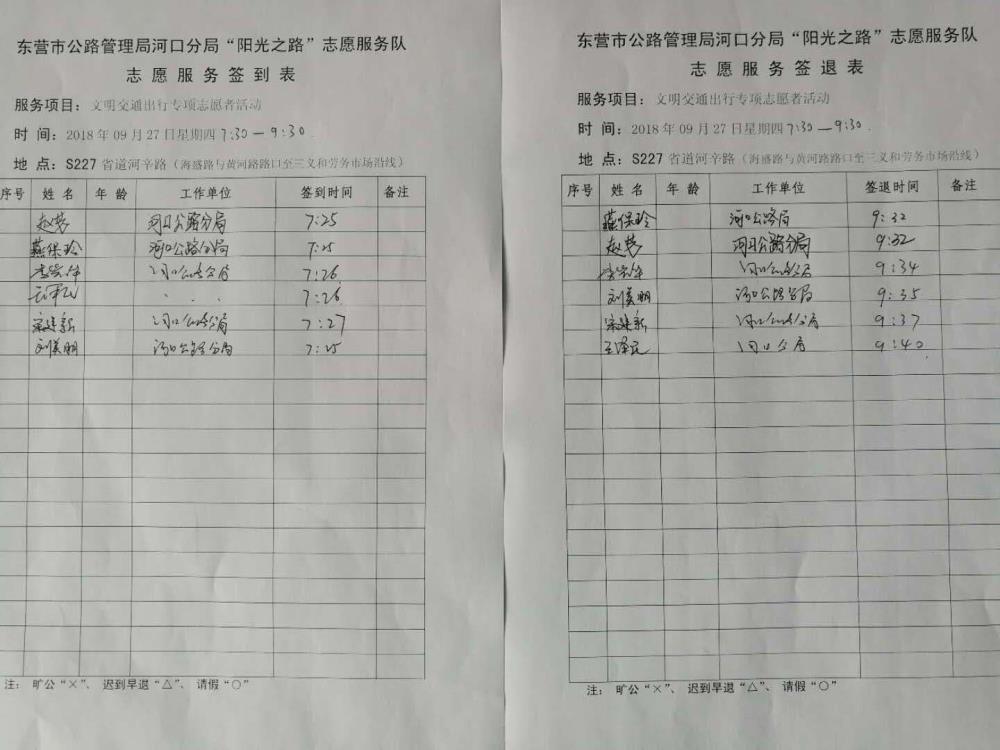 东营市公路管理局河口分局“阳光之路”志愿服务队
志愿服务签到表
服务项目：文明交通出行专项志愿者活动
时间：2018年09月27日星期四 7:30—9:30
地点：S227省道河辛路（海盛路与黄河路路口至三义和劳务市场沿线）
序号 姓名 年龄 工作单位 签到时间 备注
赵慧 河口公路分局 7:25
燕保玲 河口公路分局 7:25
河口公路分局 7:26
7:26
宋建新 河口公路分局 7:27
刘美丽 河口公路分局 7:25
注： 旷公“×”、 迟到早退“△”、 请假“○”
东营市公路管理局河口分局“阳光之路”志愿服务队
志愿服务签退表
服务项目：文明交通出行专项志愿者活动
时间：2018年09月27日星期四 7:30—9:30
地点：S227省道河辛路（海盛路与黄河路路口至三义和劳务市场沿线）
序号 姓名 年龄 工作单位 签退时间 备注
燕保玲 河口公路局 9:32
赵慧 河口公路分局 9:32
河口公路分局 9:34
刘美丽 河口公路分局 9:35
宋建新 河口公路分局 9:37
王泽民 河口分局 9:40
注： 旷公“×”、 迟到早退“△”、 请假“○”